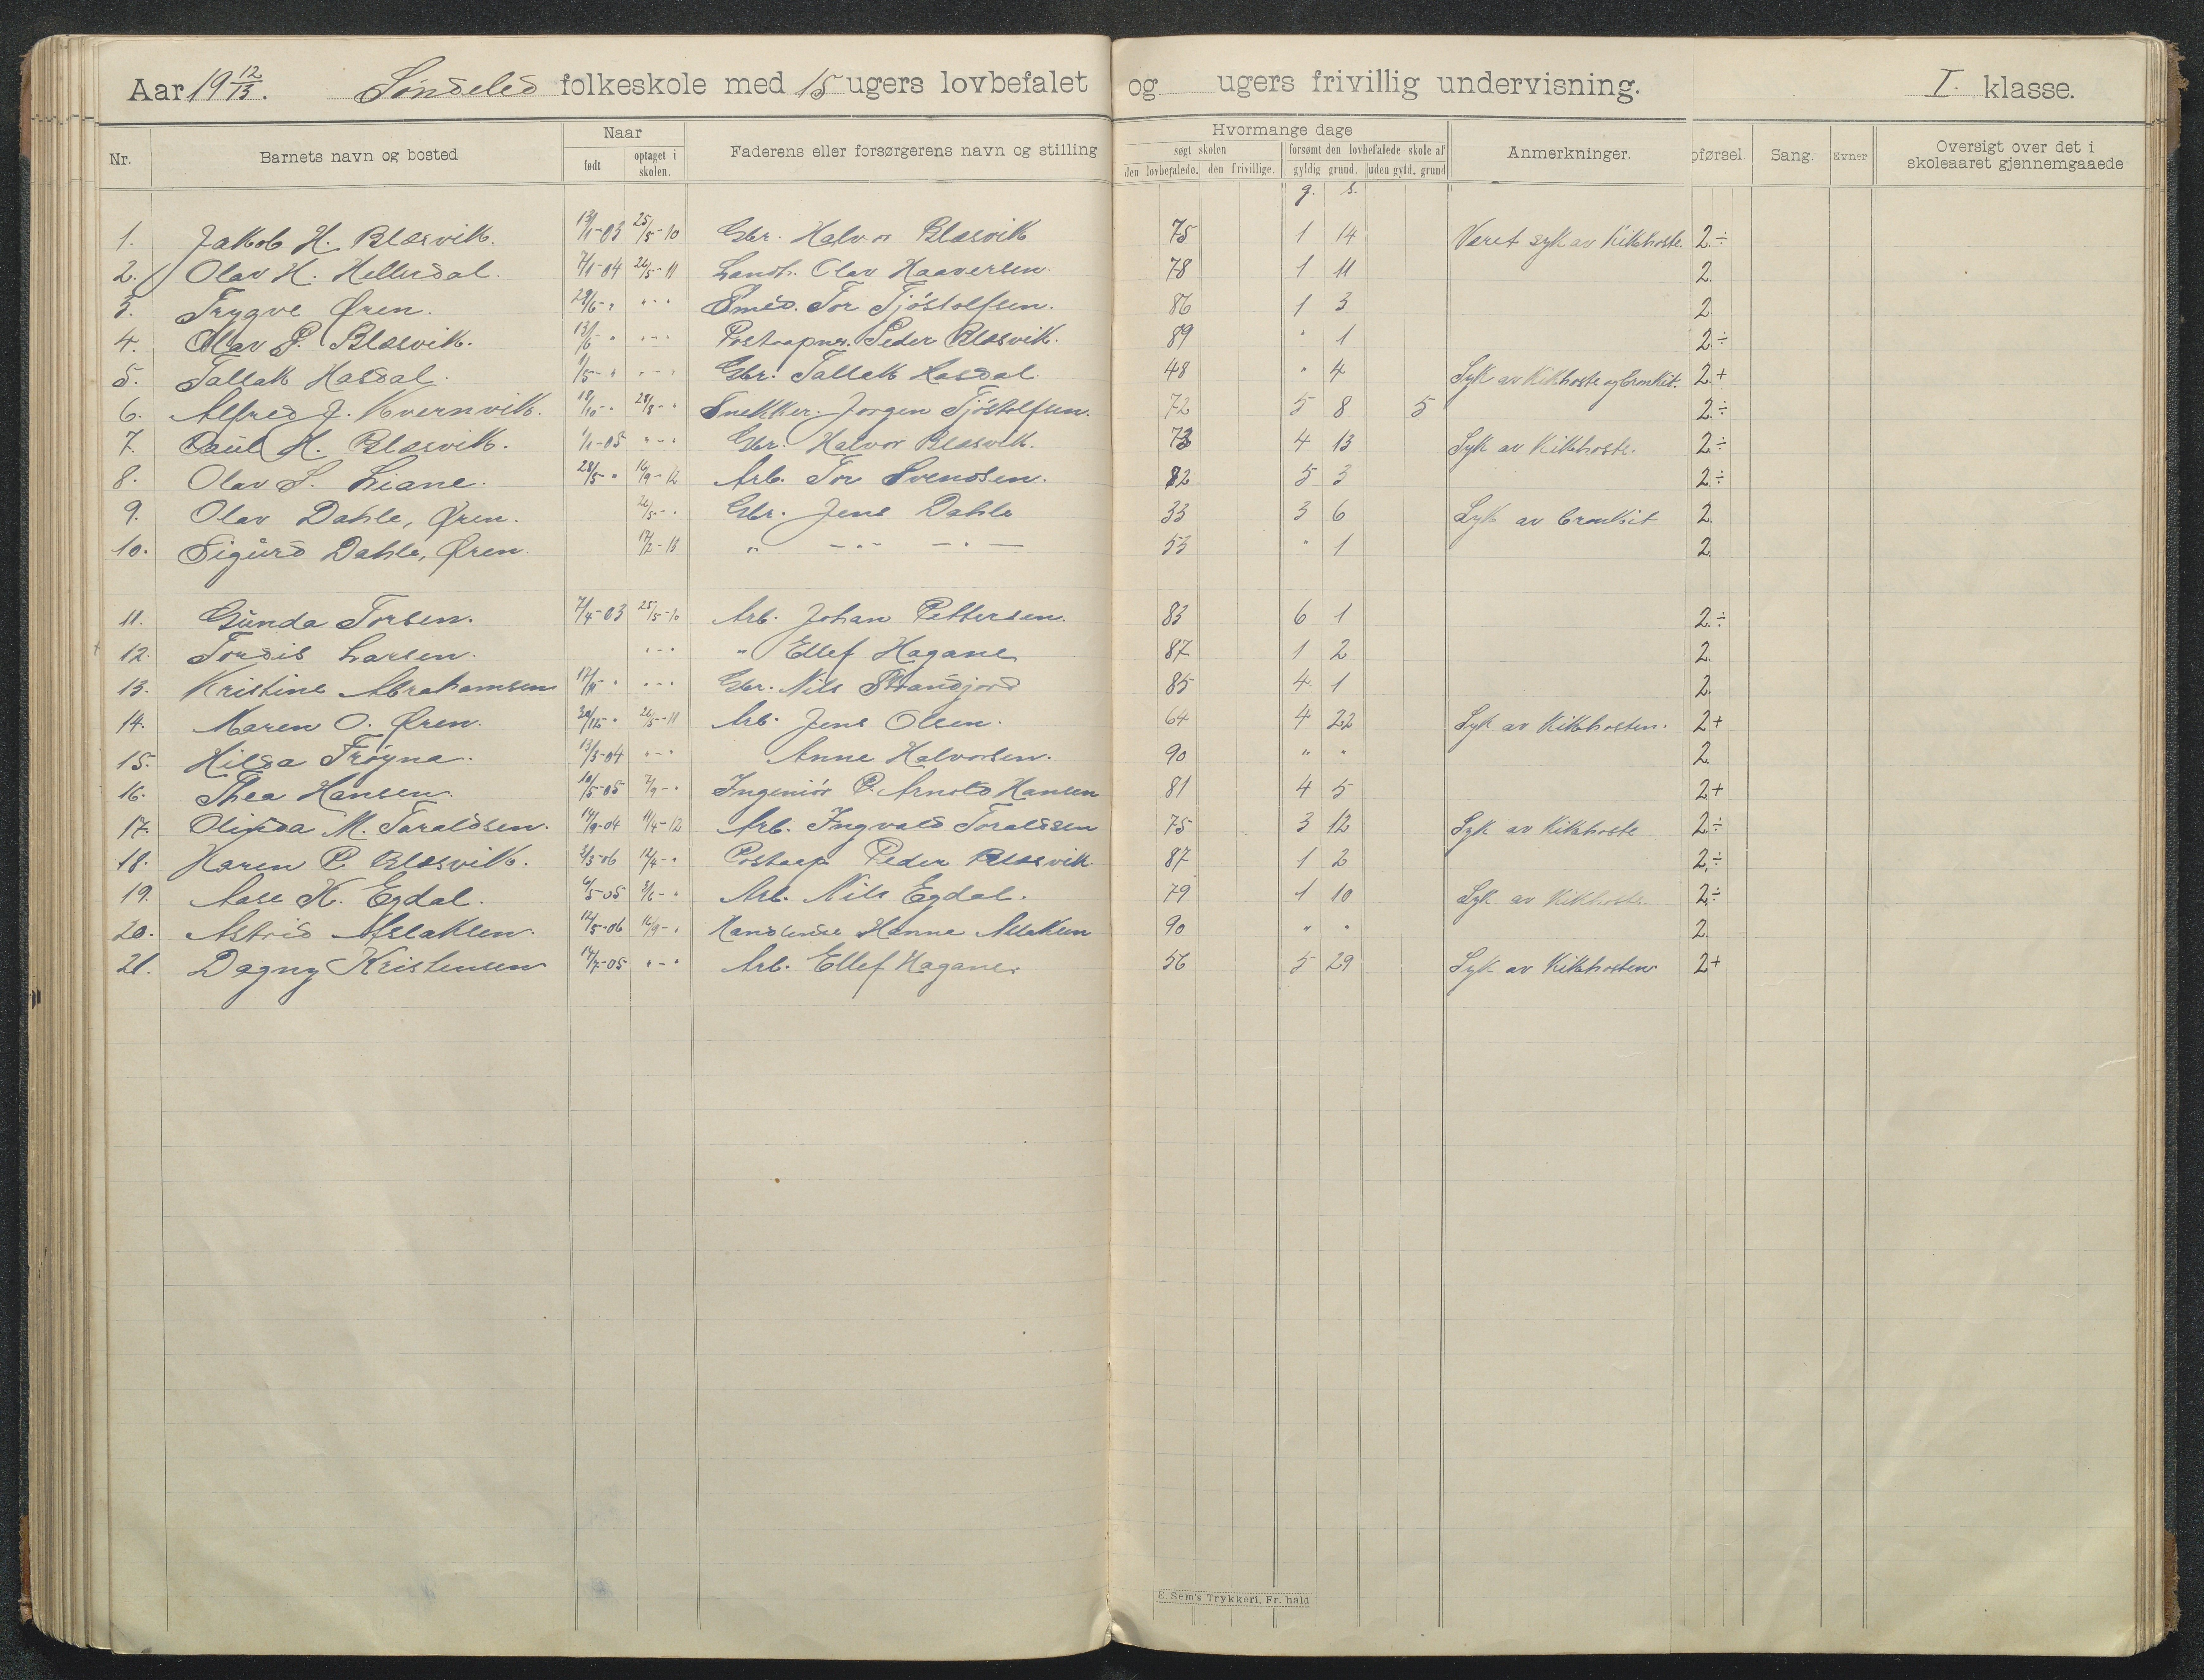 Aar 19 12/13. Søndeled folkeskole med 15 ugers lovbefalet og ugers frivillig undervisning. I. klasse.
Nr. Barnets navn og bosted Naar født optaget i skolen. Faderens eller forsørgerens navn og stilling Hvormange dage søgt skolen den lovbefalede. den frivillige. forsømt den lovbefalede skole af gyldig grund. uden gyld. grund Anmerkninger. pførsel. Sang. Evner Oversigt over det i skoleaaret gjennemgaaede
g. s.
1. Jakob H. Blæsvik. 13/1-03 25/5-10 Gbr. Halvor Blæsvik 75 1 14 Været syk av Kikhoste. 2÷
2. Olav H. Hellerdal. 7/1-04 26/5-11 Landh. Olav Haaversen. 78 1 11 2.
3. Trygve Øren. 29/6- " "-" Smed. Tor Tjöstolfsen. 86 1 3 2.
4. Olav P. Blæsvik. 13/6 " "-" Postaapner. Peder Blæsvik. 89 " 1 2÷
5. Tallak Hasdal. 1/5- " "-" Gbr. Tallak Hasdal. 48 " 4 Syk av Kikhoste og bronkit. 2+
6. Alfred J. Kvernvik. 18/10- " 28/8- " Snekker. Jørgen Tjöstolfsen. 72 5 8 5 2÷
7. Paul H. Blæsvik. 1/1-05 "-" Gbr. Halvor Blæsvik. 73 4 13 Syk av Kikhoste. 2÷
8. Olav S. Liane. 28/5- " 16/9-12 Arb. Tor Svendsen. 82 5 3 2÷
9. Olav Dahle, Øren. 26/5- " Gbr. Jens Dahle 33 3 6 Syk av bronkit 2.
10. Sigurd Dahle, Øren. 17/2-13 " -"- -"- 53 " 1 2.
11. Gunda Torsen. 7/4-03 25/5-10 Arb. Johan Pettersen. 83 6 1 2÷
12. Tordis Larsen. "-" " Ellef Hagane 87 1 2 2.
13. Kristine Abrahamsen 17/11 " "-" Gbr. Nils Strandjord 85 4 1 2.
14. Maren O. Øren. 30/12- " 26/5-11 Arb. Jens Olsen. 64 4 22 Syk av Kikhosten. 2+
15. Hilda Tröyna. 13/3-04 "-" Anne Halvorsen. 90 " " 2.
16. Thea Hansen. 10/5-05 7/9- " Ingeniör P. Arnold Hansen 81 4 5 2+
17. Olinda M. Taraldsen. 14/9-04 11/4-12 Arb. Ingvald Toraldsen 75 3 12 Syk av Kikhoste 2÷
18. Karen P. Blæsvik. 3/3-06 12/4- " Postaap. Peder Blæsvik. 87 1 2 2÷
19. Aase K. Egdal. 6/5-05 3/6- " Arb. Nils Egdal. 79 1 10 Syk av Kikhoste. 2÷
20. Astrid Aslaksen. 12/5-06 16/9- " Handlende Hanne Aslaksen 90 " " 2.
21. Dagny Kristensen 14/7-05 "-" Arb. Ellef Hagane. 56 5 29 Syk av Kikhosten 2+
E. Sem's Trykkeri, Fr. hald